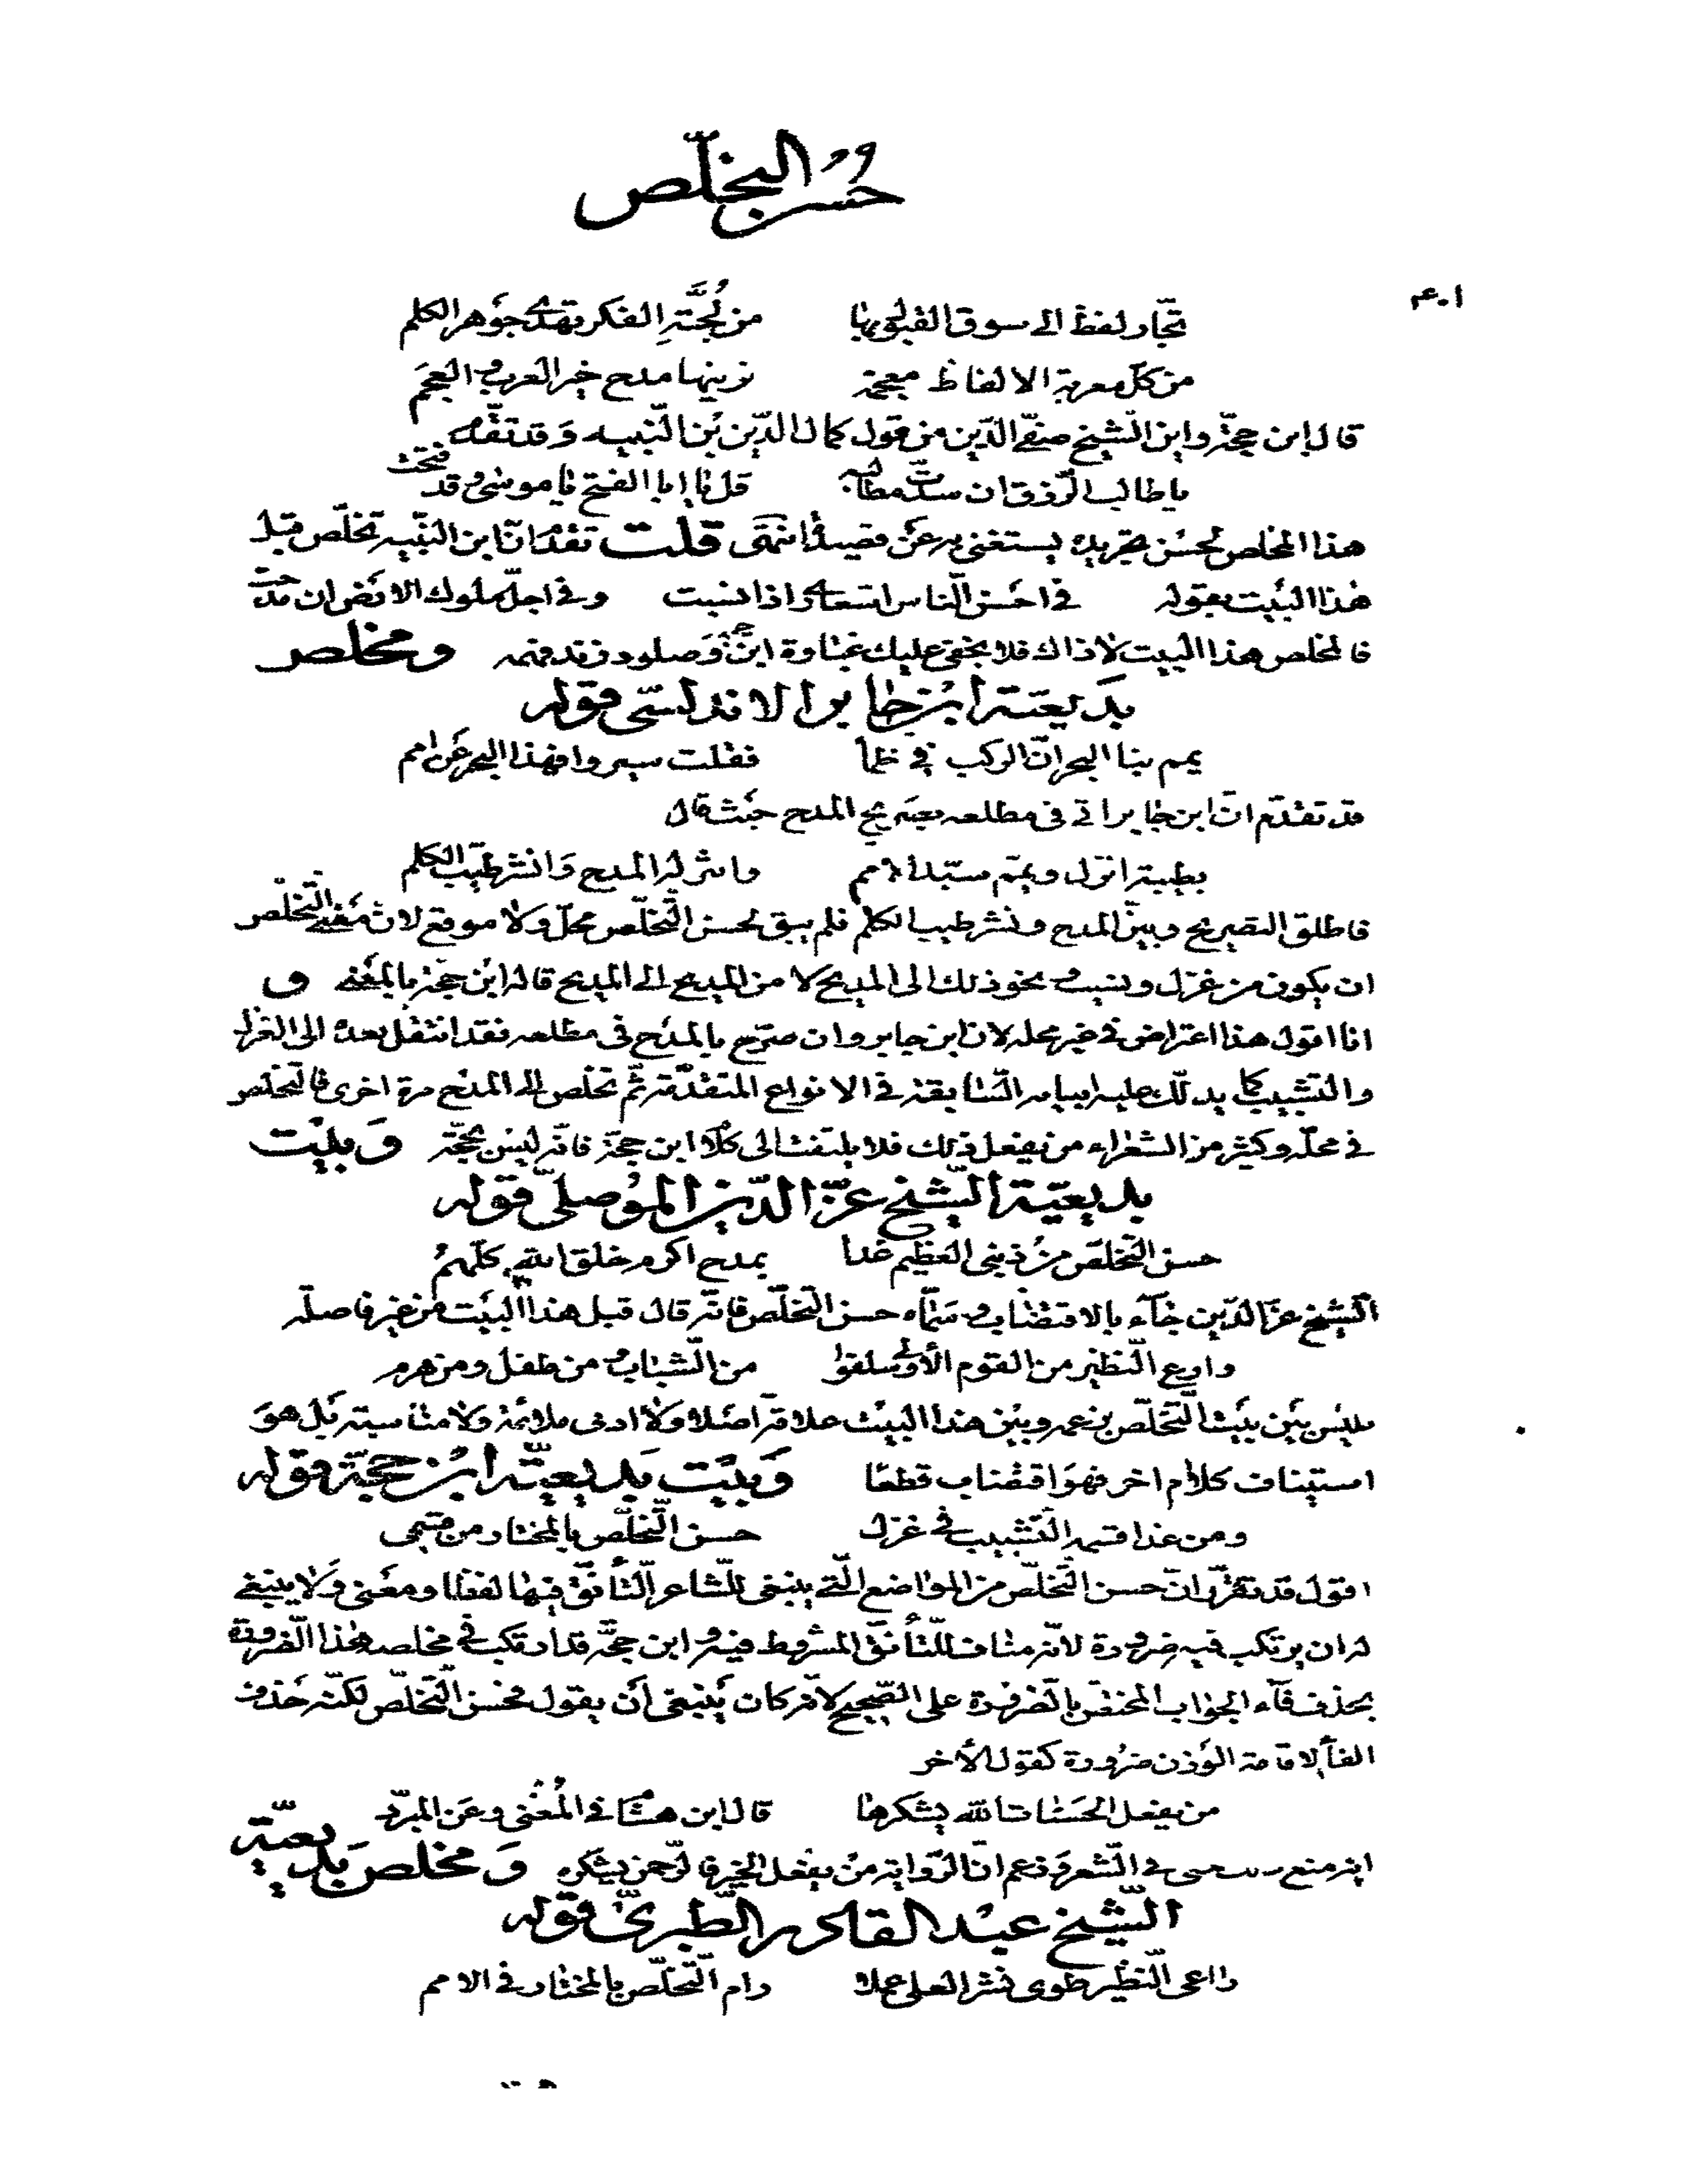 حُسْنُ التخلّص
٤٠١
تجّار لفظ الى سوق القبول بها من لُجَّةِ الفكر تهدى جوهر الكلم
من كلّ معربة الالفاظ معجمة تزينها مدح خير العرب والعجم
قال ابن حجّة وابن الشيخ صفيّ الدّين من قول كمال الدّين بن النّبيه وقد تقدّم
يا طالب الرّزق ان سدّت مطالبه قل يا ابا الفتح يا موسى وقد فتحت
هذا المخلص لحسن تجريده يستغنى به عن قصيدة انتهى قلت تقدّم انّ ابن النّبيه تخلّص قبل
هذا البيت بقوله في احسن النّاس اشعارى اذا نسبت وفي اجلّ ملوك الارض ان مدحت
فالمخلص هذا البيت لا ذاك فلا يخفى عليك غباوة ابن حجّة وصلود زند فهمه ومخلص
بديعيّة ابن جابر الاندلسّى قوله
يمم بنا البحر انّ الركب في ظمأ فقلت سيروا فهذا البحر عن امم
قد تقدّم انّ ابن جابر اتى فى مطلعه بصريح المدح حيث قال
بطيبة انزل ويمّم سيّد الامم وانثر له المدح وانشر طيّب الكلم
فاطلق التصريح وبيّن المدح ونشر طيب الكلم فلم يبق لحسن التّخلّص محلّ ولا موقع لانّ معنى التّخلّص
ان يكون من غزل ونسيب ونحو ذلك الى المديح لا من المديح الى المديح قاله ابن حجّة بالمعنى و
انا اقول هذا اعتراض في غير محله لان ابن جابر وان صرّح بالمدح فى مطلعه فقد انتقل بعده الى الغزل
والتشبيب كما يدلّك عليه ابياته السّابقة في الانواع المتقدّمة ثمّ تخلّص الى المدح مرة اخرى فالتخلّص
في محلّه وكثير من الشعراء من يفعل ذلك فلا يلتفت الى كلام ابن حجّة فانّه ليس بحجّة وبيت
بديعيّة الشّيخ عزّ الدّين الموصلىّ قوله
حسن التّخلّص من ذنبى العظيم غدا بمدح اكرم خلق الله كلّهم
الشّيخ عزّ الدّين جآء بالاقتضاب وسمّاه حسن التخلّص فانّه قال قبل هذا البيت من غير فاصلة
وارع النّظير من القوم الأولى سلفوا من الشّباب ومن طفل ومن هرم
فليس بين بيت التّخلّص بزعمه وبين هذا البيت علاقة اصلا ولا ادنى ملائمة ولا مناسبة بل هو
استيناف كلام اخر فهو اقتضاب قطعًا وبيت بديعيّة ابن حجّة قوله
ومن غدا قسمه التّشبيب في غزل حسن التّخلّص بالمختار من قسمى
اقول قد تقرّر انّ حسن التّخلّص من المواضع الّتى ينبغى للشّاعر التّأنّق فيها لفظا ومعنى ولا ينبغى
له ان يرتكب فيه ضرورة لانّه مناف للتّأنّق المشروط فيه وابن حجّة قد ارتكب فى مخلصه هذا الضّرورة
بحذف فآء الجواب المختصّ بالضرورة على الصّحيح لانّه كان ينبغى أن يقول فحسن التّخلّص لكنّه حذف
الفآء لاقامة الوزن ضرورة كقول الأخر
من يفعل الحسنات الله يشكرها قال ابن هشام في المُغنى وعن المبرّد
انه منع في الشّعر وزعم انّ الرّواية من يفعل الخير فالرّحمن يشكره ومخلص بديعيّة
الشّيخ عبد القادر الطّبرىّ قوله
راعى النّظير طوى نشر العلى عملا رام التّخلّص بالمختار فى الامم